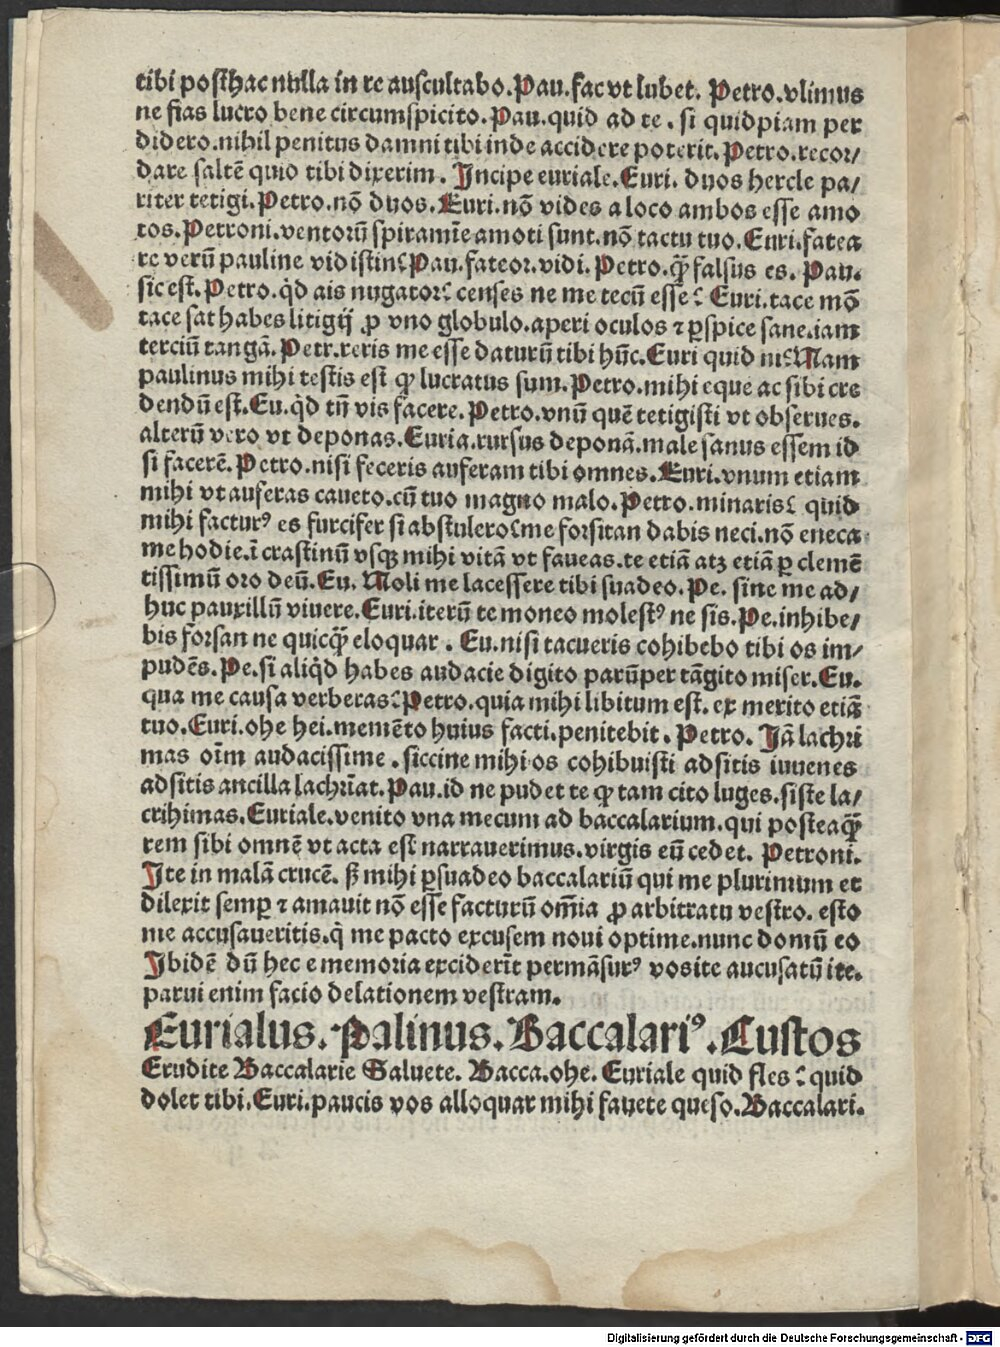 tibi posthac nulla in re auscultabo. Pau. fac vt lubet. Petro. vlimus
ne fias lucro bene circumspicito. Pau. quid ad te. si quidpiam per
didero. nihil penitus damni tibi inde accidere poterit. Petro. recor/
dare saltē quid tibi dixerim. Incipe euriale. Euri. duos hercle pa/
riter tetigi. Petro. nō duos. Euri. nō vides a loco ambos esse amo
tos. Petroni. ventorū spiramīe amoti sunt. nō tactu tuo. Euri. fatea
re verū pauline vidistin? Pau. fateor. vidi. Petro. qꝫ̄ falsus es. Pau.
sic est. Petro. qd̓ ais nugator? censes ne me tecū esse? Euri. tace mō
tace sat habes litigij ꝓ vno globulo. aperi oculos ⁊ ꝑspice sane. iam
terciū tangā. Petr. reris me esse daturū tibi hūc. Euri quid ni? Nam
paulinus mihi testis est ꝙ lucratus sum. Petro. mihi eque ac sibi cre
dendū est. Eu. qd̓ tū vis facere. Petro. vnū quē tetigisti vt obserues.
alterū vero vt deponas. Euria. rursus deponā. male sanus essem id
si facerē. Petro. nisi feceris auferam tibi omnes. Euri. vnum etiam
mihi vt auferas caueto. cū tuo magno malo. Petro. minaris? quid
mihi facturꝰ es furcifer si abstulero? me forsitan dabis neci. nō eneca
me hodie. ī crastinū vsqꝫ mihi vitā vt faueas. te etiā atqꝫ etiā ꝑ clemē
tissimū oro deū. Eu. Noli me lacessere tibi suadeo. Pe. sine me ad/
huc pauxillū viuere. Euri. iterū te moneo molestꝰ ne sis. Pe. inhibe/
bis forsan ne quicqꝫ̄ eloquar. Eu. nisi tacueris cohibebo tibi os im/
pudēs. Pe. si aliqd̓ habes audacie digito parūper tāgito miser. Eu.
qua me causa verberas? Petro. quia mihi libitum est. ex merito etiā
tuo. Euri. ohe hei. memēto huius facti. penitebit. Petro. Jā lachri
mas oīm audacissime. siccine mihi os cohibuisti adsitis iuuenes
adsitis ancilla lachrīat. Pau. id ne pudet te ꝙ tam cito luges. siste la/
crihimas. Euriale. venito vna mecum ad baccalarium. qui posteaqꝫ̄
rem sibi omnē vt acta est narrauerimus. virgis eū cedet. Petroni.
Ite in malā crucē. ß mihi ꝑsuadeo baccalariū qui me plurimum et
dilexit semꝑ ⁊ amauit nō esse facturū om̄ia ꝓ arbitratu vestro. esto
me accusaueritis. q̓ me pacto excusem noui optime. nunc domū eo
Ibidē dū hec e memoria exciderīt permāsurꝰ vos ite aucusatū ite.
parui enim facio delationem vestram.
Eurialus. Palinus. Baccalariꝰ. Custos
Erudite Baccalarie Saluete. Bacca. ohe. Euriale quid fles? quid
dolet tibi. Euri. paucis vos alloquar mihi fauete queso. Baccalari.
Digitalisierung gefördert durch die Deutsche Forschungsgemeinschaft - DFG